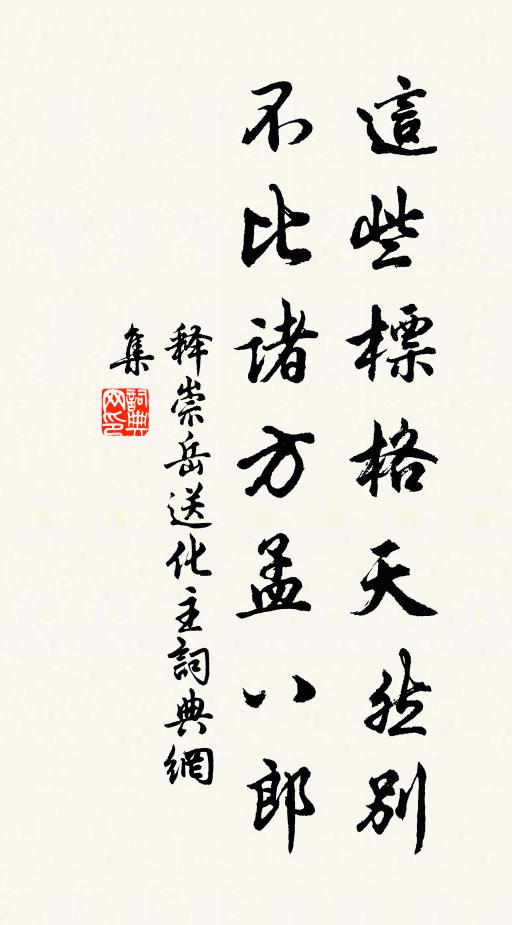 這些標格天然別
不比諸方孟八郎
释崇岳送化主詞典網
集
詞典
网印